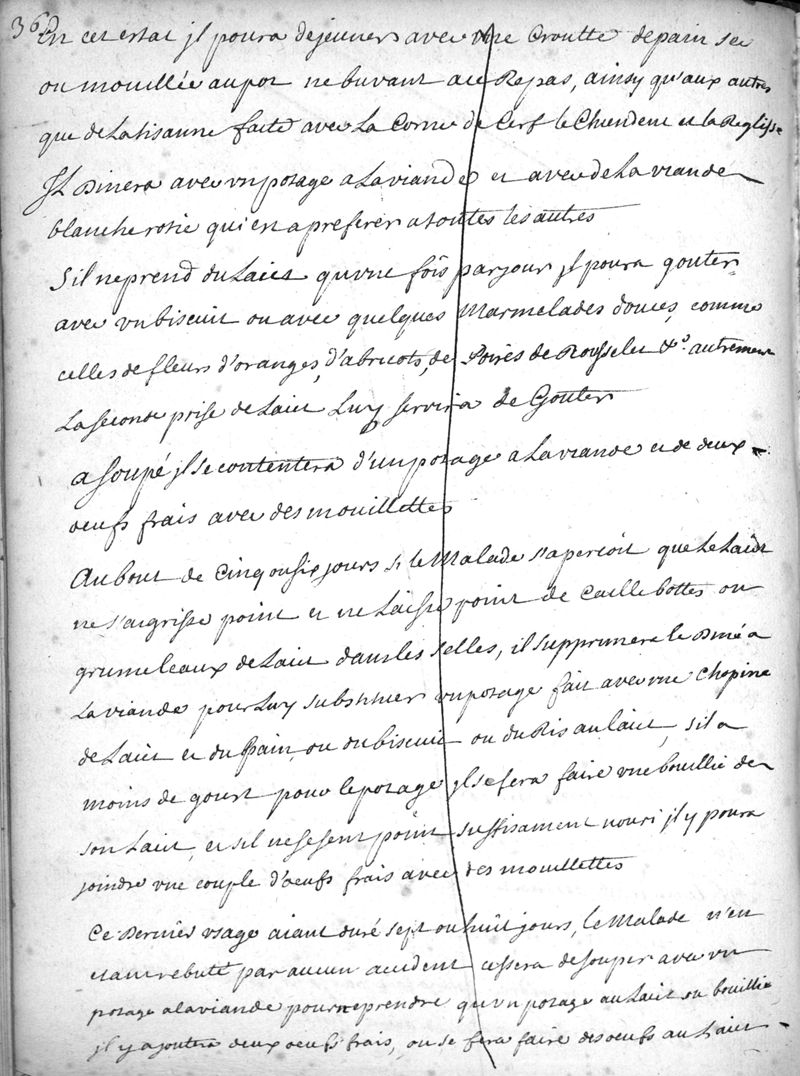 36
En cet estat jl poura dejeuner avec vne Croutte de pain sec
ou mouillée au pot ne buvant a ce Repas, ainsy qu'aux autres
que de La tisanne faite avec La Corne de Cerf le Chiendent et la Reglisse
Jl Dinera avec vn potage a La viande et avec de La viande
blanche rotie qui en a preferer a touttes les autres
S'il ne prend du Laict qu'vne fois par jour jl poura gouter
avec vn biscuit ou avec quelques Marmelades douces, comme
celles de fleurs d'oranges, d'abricots, de Poires de Rousselet &ca. autrement
La seconde prise de Laict Luy servira de Gouter
a Soupé jl se contentera d'un potage a La viande et de deux
oeufs frais avec des mouillettes
Au bout de Cinq ou six jours si le Malade s'apercoit que Le Laict
ne s'aigrisse point et ne Laisse point de Caillebottes ou
grumeleaux de Laict dans les selles, il supprimera le Diné a
La viande pour Luy substituer vn potage fait avec vne Chopine
de Laict et du Pain, ou du biscuit ou du Ris au laict, s'il a
moins de goust pour le potage jl se fera faire vne bouillie de
son Laict, et s'il ne se sent point suffisament nouri jl y poura
joindre vne couple d'oeufs frais avec des mouillettes
Ce Dernier vsage aiant duré sept ou huit jours, le Malade n'en
etant rebuté par aucun accident cessera de souper avec vn
potage a la viande pour ne prendre qu'vn potage au Laict ou bouillie
jl y ajoutera deux oeufs frais, ou se fera faire des oeufs au Laict